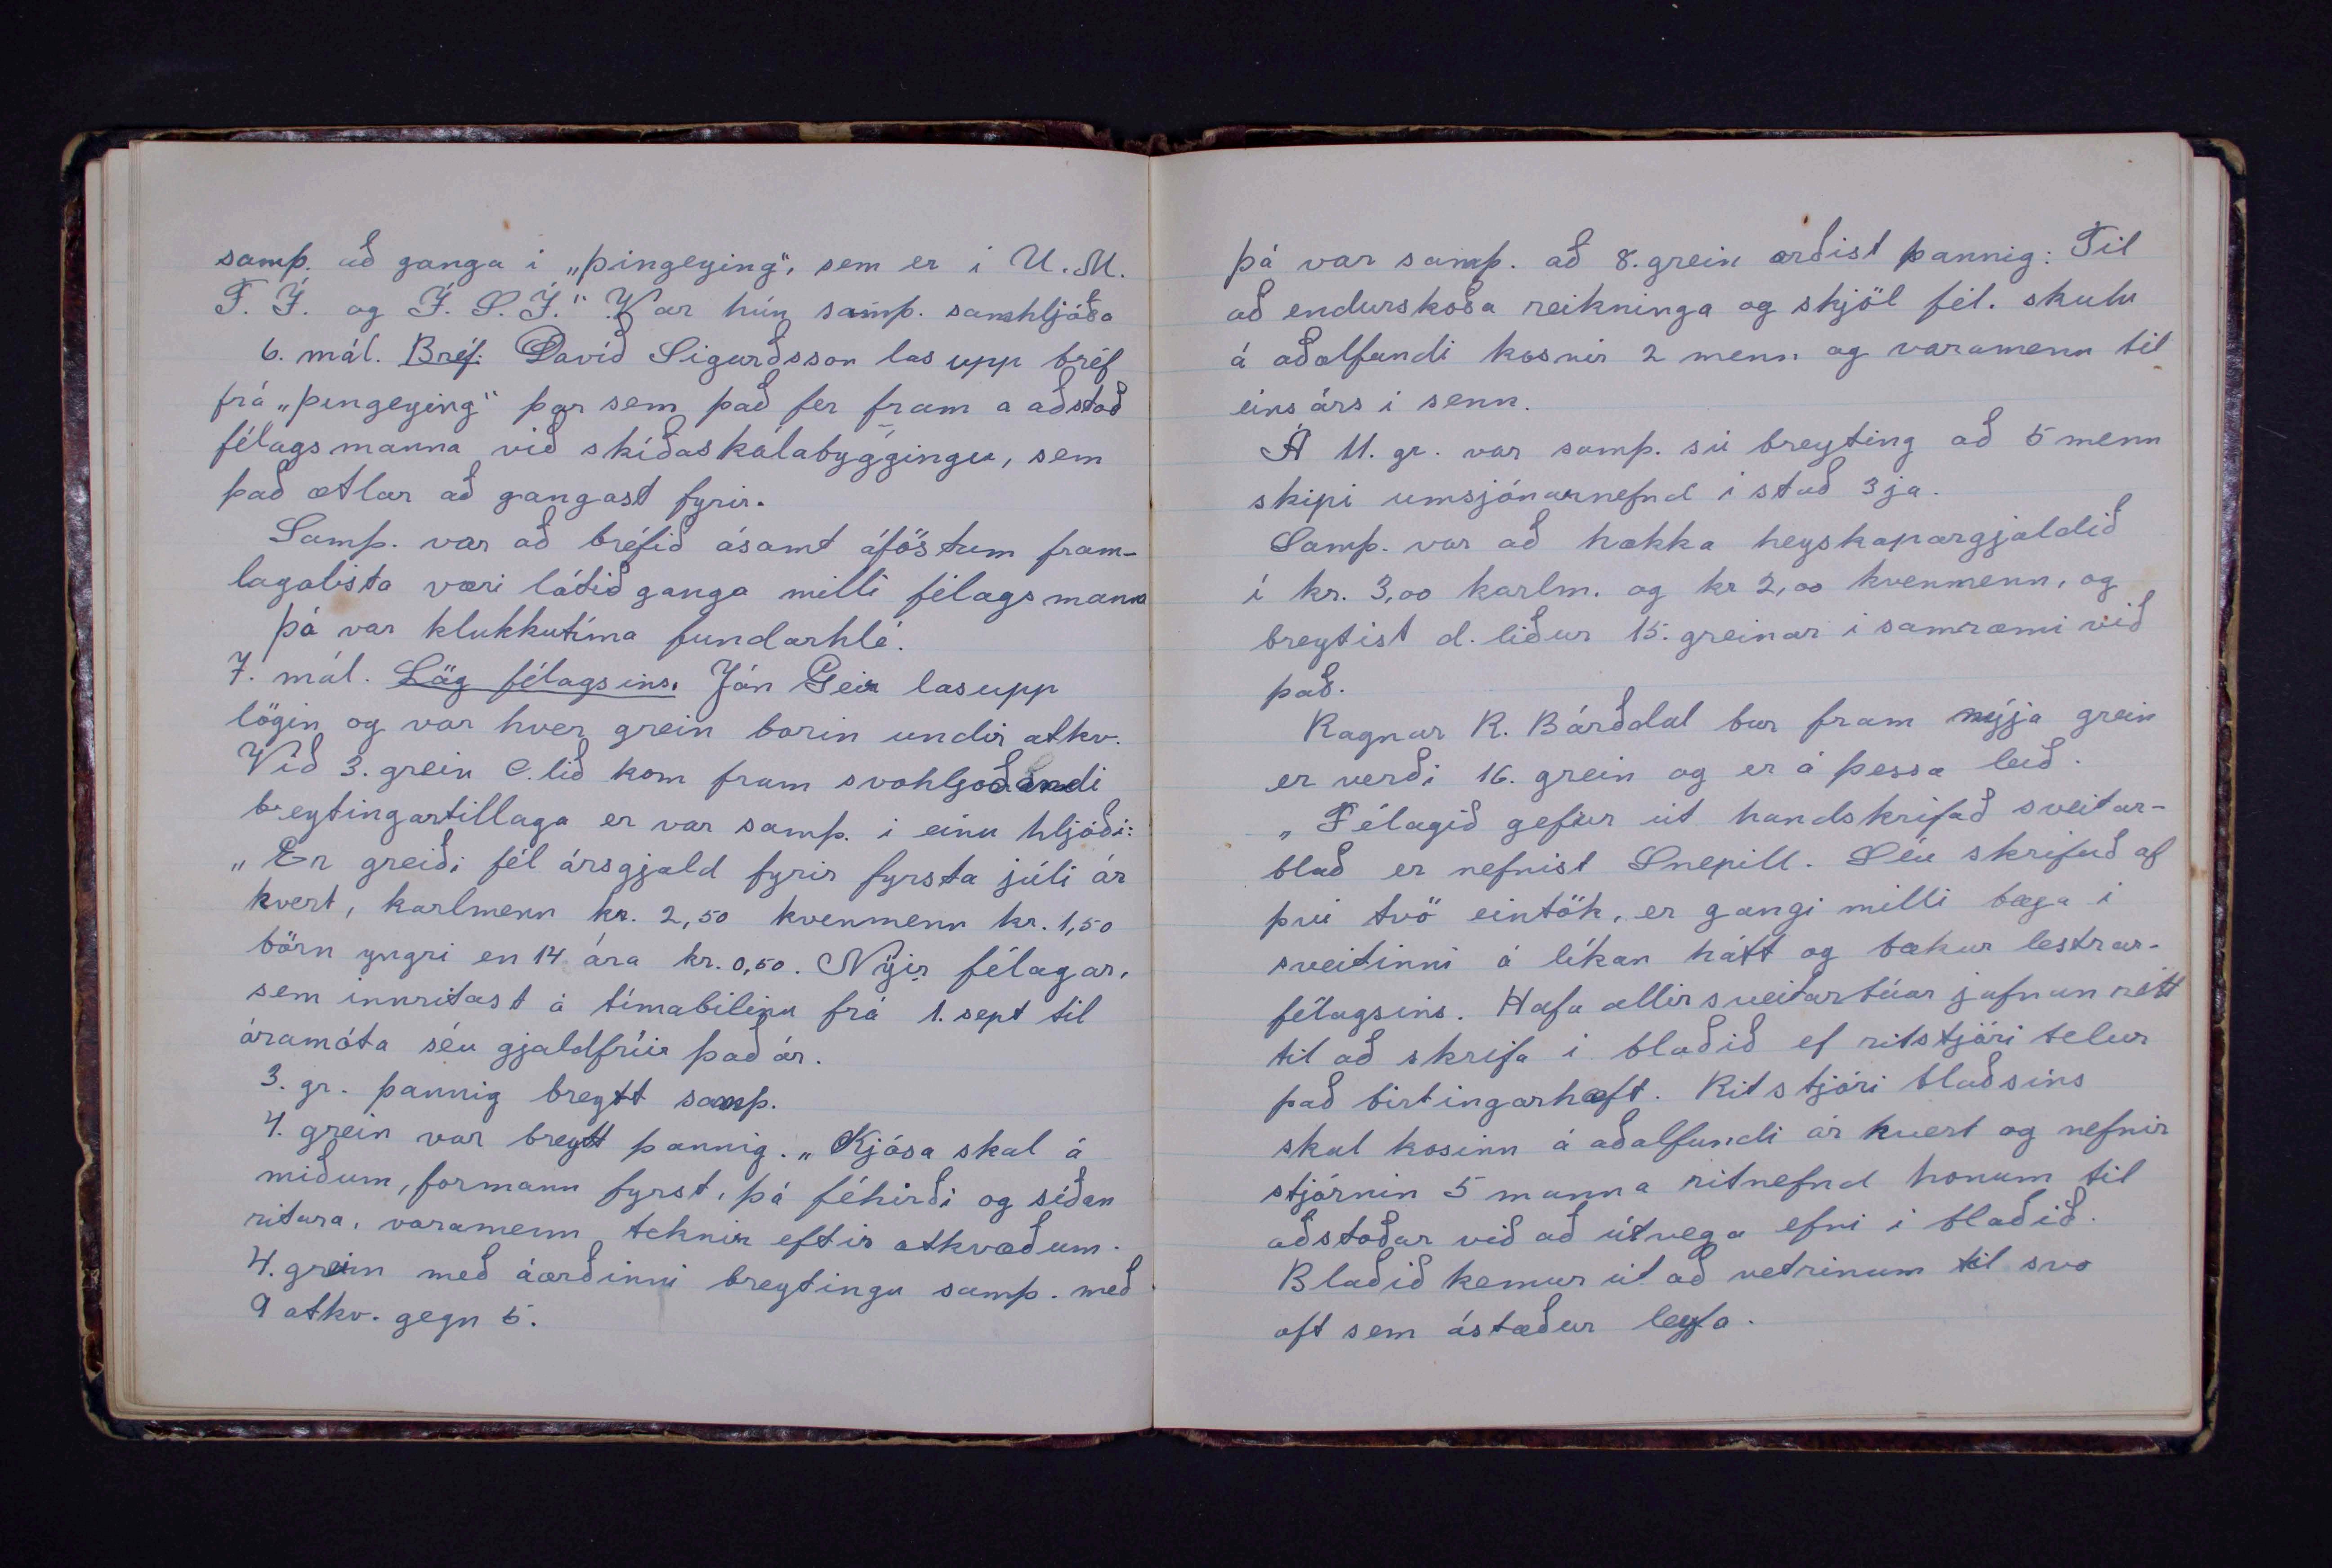 samþ. að ganga i „þingeying", sem er i U.M.
F. Í. og Í. S. Í." Var hún samþ. samhljóða
6. mál. Bréf: Davíð Sigurðsson las upp bréf
frá „þingeying" þar sem það fer fram a aðstoð
félagsmanna við skíðaskálabyggingu, sem
það ætlar að gangast fyrir.
Samþ. var að bréfið ásamt áföstum fram-
lagalista væri látið ganga milli félagsmanna
þá var klukkutíma fundarhlé.
7. mál. Lög félagsins. Jón Geir las upp
lögin og var hver grein borin undir atkv.
Við 3. grein C. lið kom fram svohljoðandi
breytingartillaga er var samþ. i einu hljóði:
„En greiði fél ársgjald fyrir fyrsta júli ár
hvert, karlmenn kr. 2,50 kvenmenn kr. 1,50
börn yngri en 14 ára kr. 0,50. Nýir félagar,
sem innritast á tímabilinu frá 1. sept til
áramóta séu gjaldfríir það ár.
3. gr. þannig breytt samþ.
4. grein var breytt þannig. „Kjósa skal á
miðum, formann fyrst, þá féhirði og síðan
ritara, varamenn teknir eftir atkvæðum.
4. grein með áorðinni breytingu samþ. með
9 atkv. gegn 5.
þá var samþ. að 8. grein orðist þannig: Til
að endurskoða reikninga og skjöl fél. skulu
á aðalfundi kosnir 2 menn og varamenn til
eins árs i senn.
Á 11. gr. var samþ. sú breyting að 5 menn
skipi umsjónarnefnd i stað 3ja.
Samþ. var að hækka heyskapargjaldið
i kr. 3,00 karlm. og kr 2,00 kvenmenn, og
breytist d. liður 15. greinar i samræmi við
það.
Ragnar R. Bárðdal bar fram nýja grein
er verði 16. grein og er á þessa leið.
„Félagið gefur út handskrifað sveitar-
blað er nefnist Snepill. Séu skrifuð af
þvi tvö eintök, er gangi milli bæja i
sveitinni á líkan hátt og bækur lestrar-
félagsins. Hafa allir sveitarbúar jafnan rétt
til að skrifa i blaðið ef ritstjóri telur
það birtingarhæft. Ritstjóri blaðsins
skal kosinn á aðalfundi ár hvert og nefnir
stjórnin 5 manna ritnefnd honum til
aðstoðar við að útvega efni i blaðið.
Blaðið kemur út að vetrinum til svo
oft sem ástæður leyfa.